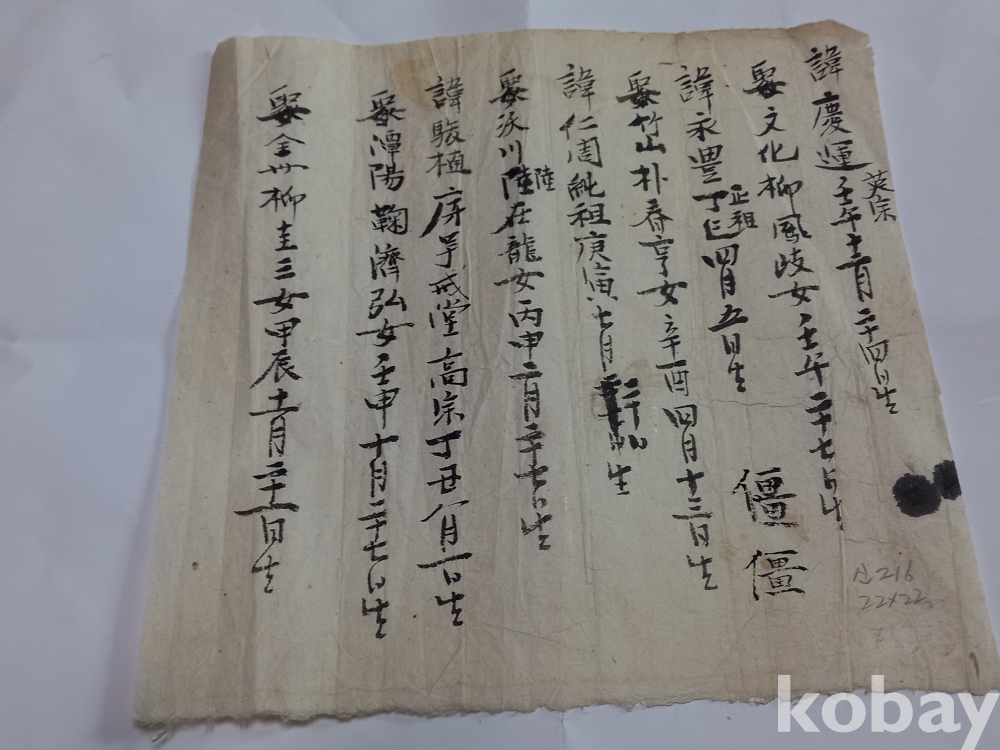 諱慶運 英宗 壬午十二月二十四日生
娶文化柳鳳歧女壬午 二十七日生
諱永豊 正祖 丁巳四月五日生
僵僵
娶竹山朴春亨女辛酉四月十三日生
諱仁周純祖庚寅七月 二十 日生
娶沃川陸 陸 在龍女丙申二月二十七日生
諱駿植 房号戒堂高宗丁丑八月一日生
娶潭陽鞠濟弘女壬申十月二十七日生
娶全州柳圭三女甲辰十一月二十一日生
산216
22x22
kobay